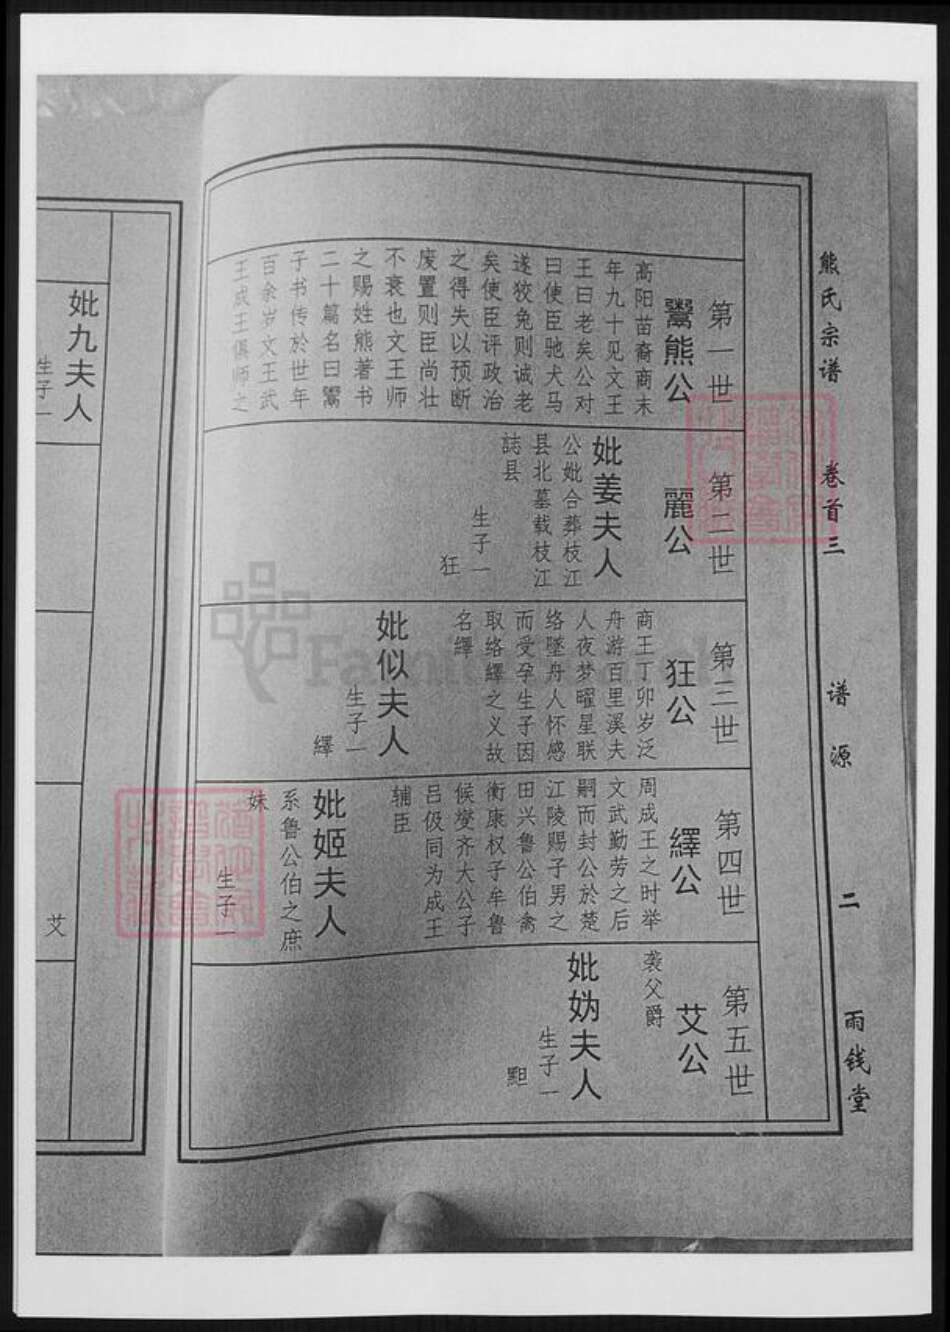 熊氏宗谱 卷首三 谱源 二 雨钱堂
第一世
鬻熊公
高阳苗裔商末
年九十见文王
王曰老矣公对
曰使臣驰犬马
遂狡兔则诚老
矣使臣评政治
之得失以预断
废置则臣尚壮
不衰也文王师
之赐姓熊著书
二十篇名曰鬻
子书传於世年
百余岁文王武
王成王俱师之
第二世
麗公
妣姜夫人
公妣合葬枝江
县北墓载枝江
誌县
生子一
狂
第三世
狂公
商王丁卯岁泛
舟游百里溪夫
人夜梦曜星联
络墜舟人怀感
而受孕生子因
取络繹之义故
名繹
妣似夫人
生子一
繹
第四世
繹公
周成王之时举
文武勤劳之后
嗣而封公於楚
江陵赐子男之
田兴鲁公伯禽
衡康权子牟鲁
候燮齐大公子
吕伋同为成王
辅臣
妣姬夫人
系鲁公伯之庶
妹
生子一
艾
第五世
艾公
袭父爵
妣妫夫人
生子一
䵣
妣九夫人
生子一